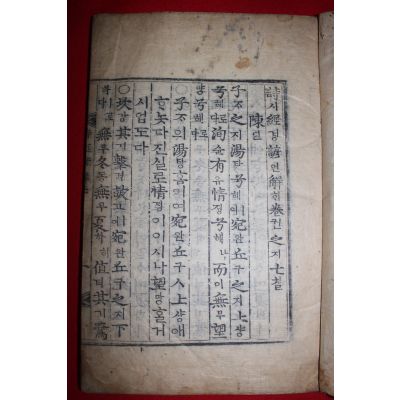 詩시經경諺언解ᄒᆡ卷권之지七칠
陳딘
子ᄌᆞ之지湯탕兮혜여宛완丘구之지上샹
兮혜로다洵슌有유情졍兮혜나而이無무望
망兮혜로다
○子ᄌᆞ의湯탕홈이여宛완丘구ㅅ上샹애
ᄒᆞ놋다진실로情졍이이시나望망홀거
시업도다
○坎감其기擊격鼓고여宛완丘구之지下
하로다無무冬동無무夏하히値티其기鷺